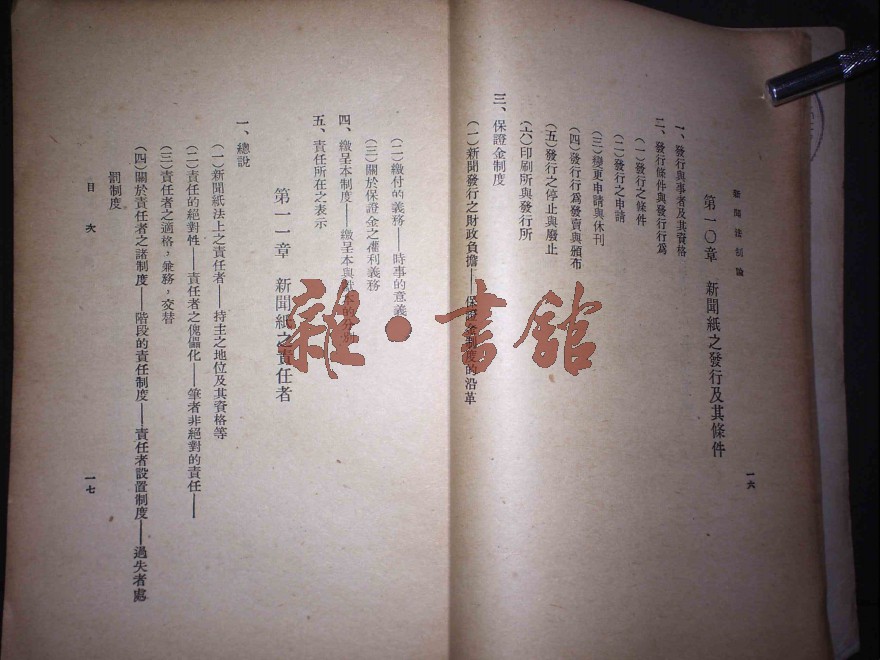 新聞法制論
第一〇章 新聞紙之發行及其條件
一、發行與事者及其資格
二、發行條件與發行行爲
(一)發行之條件
(二)發行之申請
(三)變更申請與休刊
(四)發行行爲發賣與頒布
(五)發行之停止與廢止
(六)印刷所與發行所
三、保證金制度
(一)新聞發行之財政負擔——保證金制度的沿革
一六
(二)繳付的義務——時事的意義
(三)關於保證金之權利義務
四、繳呈本制度——繳呈本與
五、責任所在之表示
第一一章 新聞紙之責任者
一、總說
(一)新聞紙法上之責任者——持主之地位及其資格等
(二)責任的絕對性——責任者之傀儡化——筆者非絕對的責任——
(三)責任者之適格,兼務,交替
(四)關於責任者之諸制度——階段的責任制度——責任者設置制度——過失者處
罰制度
目次
一七
雜·書舘